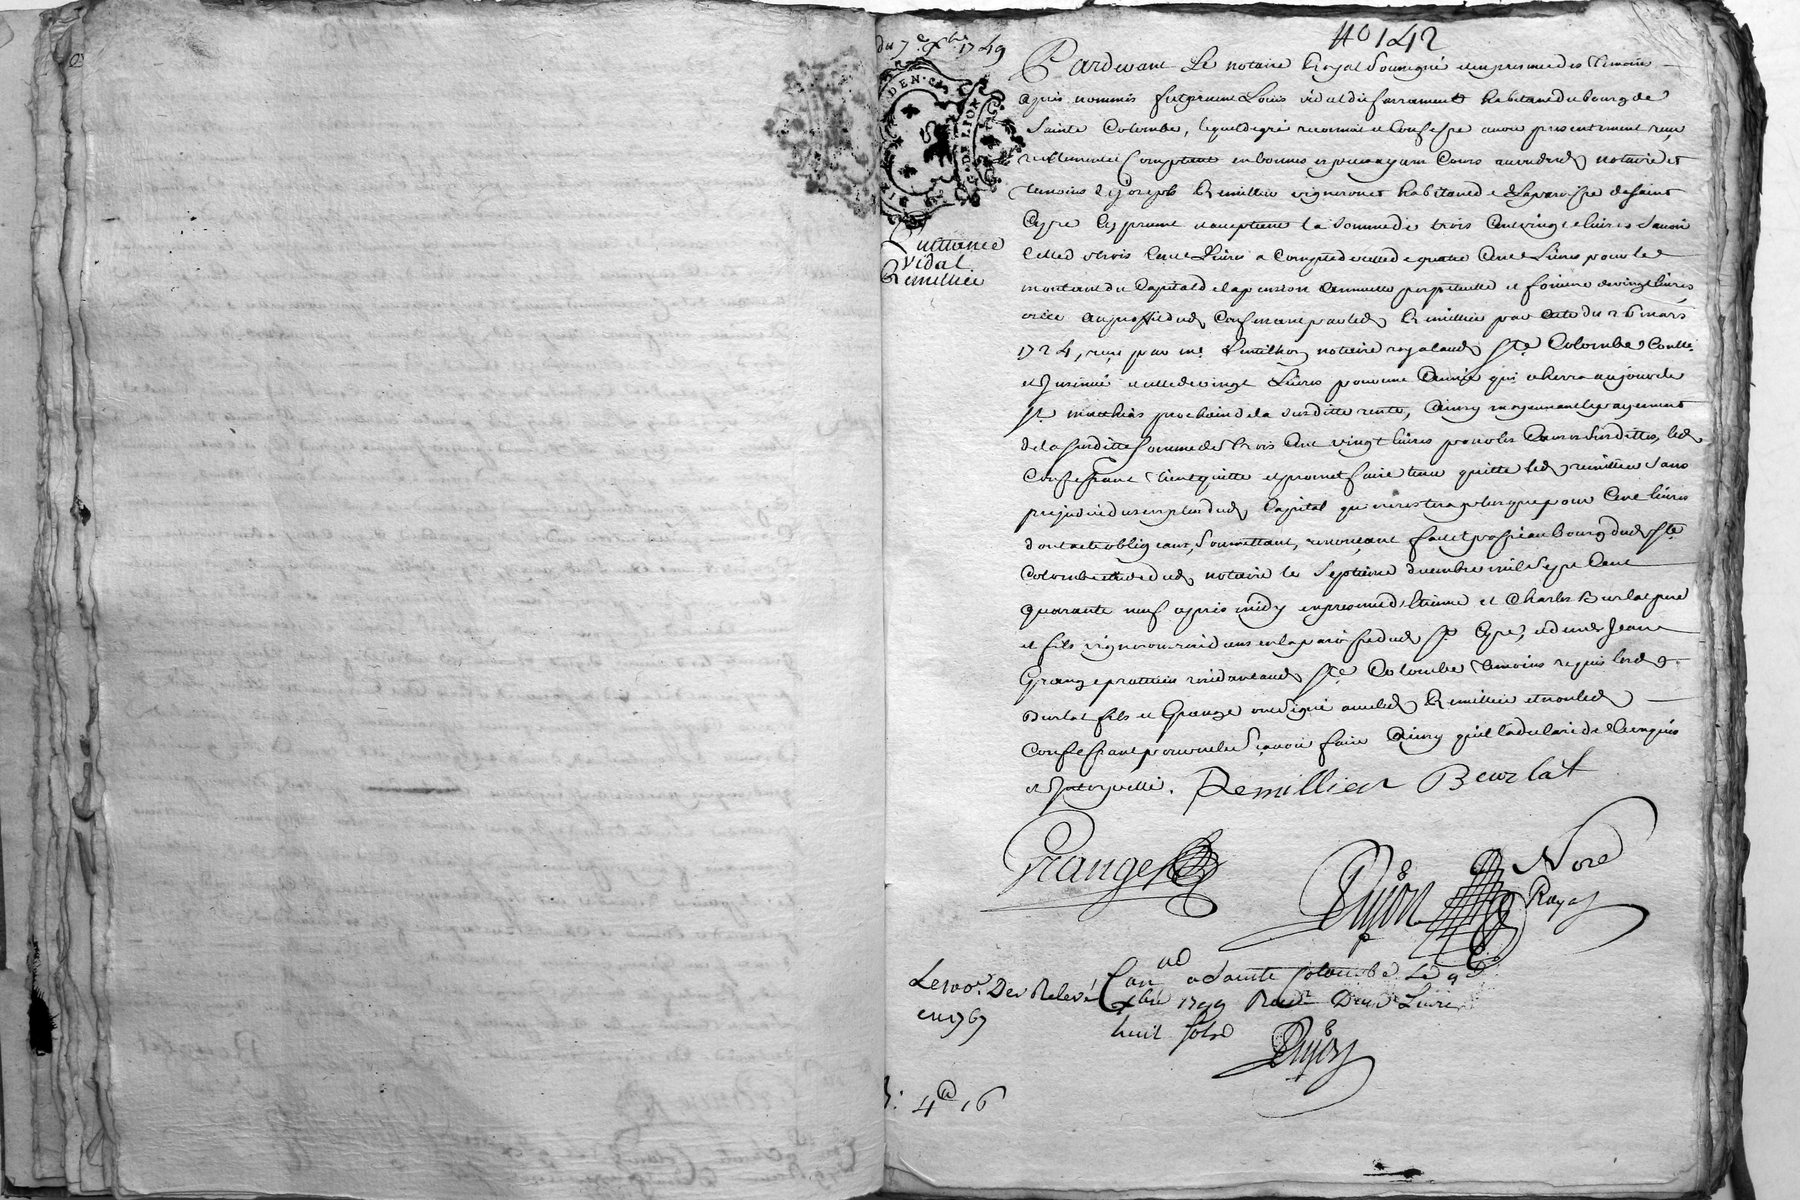 du 7e xbre 1749
40 142
DEN. CA
G. DE LION
Quittance
Vidal
Remillier
Pardevant Le notaire Royal Soussigné et en presence des temoins
apres nommés fut present Louis vidal dit habitant du bourg de
Sainte Colombe, lequel de gré reconnoit et Confesse avoir presentement reçu
reellement et Comptant en bonnes especes ayant Cours au vu dud notaire et
temoins de Joseph Remillier vigneron et habitant de la paroisse de Saint
Cyre Cy present et acceptant la Somme de trois Cent vingt livres Savoir
Celle de trois Cent Livres a Compte de celle de quatre Cent Livres pour le
montant du Capital de la pension annuelle perpetuelle et fonciere de vingt livres
créée au proffit dud Confessant par led Remillier par acte du 26 mars
1724, reçu par me notaire royal aud Ste Colombe Conllé
et Insinué et celle de vingt Livres pour une année qui echerra au jour de
St mathias prochain de la Susditte rente, Ainsy moyennant le payement
de la Susditte Somme de trois Cent vingt livres pour les Causes Susdittes, led
Confessant tient quitte et promet faire tenir quitte led remillier Sans
prejudice du Surplus dud Capital qui ne restera plus que pour Cent livres
dont acte obligeant, Soumettant, renonçant fait et passé au bourg dud Ste
Colombe etude dud notaire le Septieme decembre mil Sept Cent
quarante neuf apres midy en presence d'Etienne et Charles Burlat pere
et fils vignerons residans en la paroisse dud St Cyre, et de me Jean
Grange praticien residant aud Ste Colombe temoins requis led
Burlat fils et Grange ont Signé avec led Remillier et non led
Confessant pour ne le Sçavoir faire Ainsy qu'il l'a declaré de ce enquis
et Interpellé. Remillier Beurlat
Grange
Dujon Nore
Royal
Le 100e Den Relevé
en 1767
Con a Sainte Colombe Le 9e
xbre 1749 Reçu Deux Livres
huit Sols
Dujon
4 16